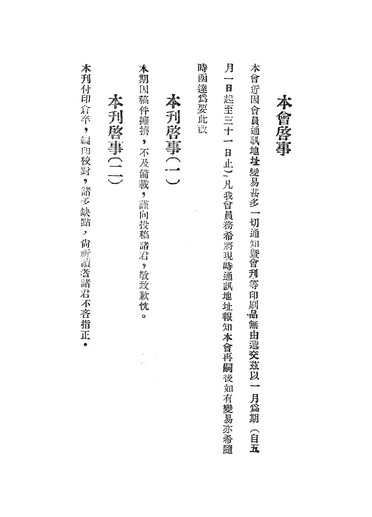 本會啓事
本會近因會員通訊地址變易甚多一切通知暨會刊等印刷品無由遞交茲以一月爲期（自五
月一日起至三十一日止）凡我會員務希將現時通訊地址報知本會再嗣後如有變易亦希隨
時函達爲要此啟
本刊啓事（一）
本期因稿件擁擠，不及備載，謹向投稿諸君，敬致歉忱。
本刊啓事（二）
本刊付印倉卒，編印校對，諸多缺點，尙祈讀者諸君不吝指正。